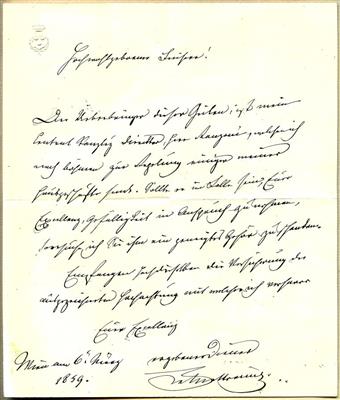 Hochwohlgeborner
Der Ueberbringer dieser Zeilen, ist mein
Central Kanzley Director, Herr welchen ich
nach Böhmen zur Regelung einiger meiner
sende. Sollte er im Falle sein, Euer
Excellenz, Gefälligkeit in Anspruch zu nehmen,
so ersuche ich Sie ihm ein geneigtes Gehör zu schenken.
Empfangen Hochdieselben die Versicherung der
ausgezeichneten Hochachtung mit welcher ich verharre
Euer Excellenz
Wien am 6. März
ergebenster Diener
1859.